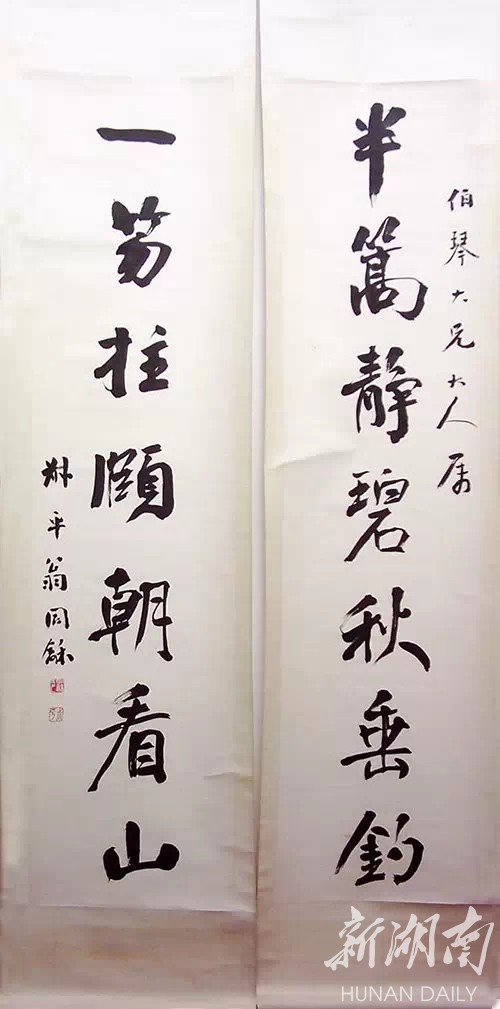 伯琴大兄大人属
半篙静碧秋垂钓
一笏拄頤朝看山
叔平翁同龢
新湖南
HUNAN DAILY